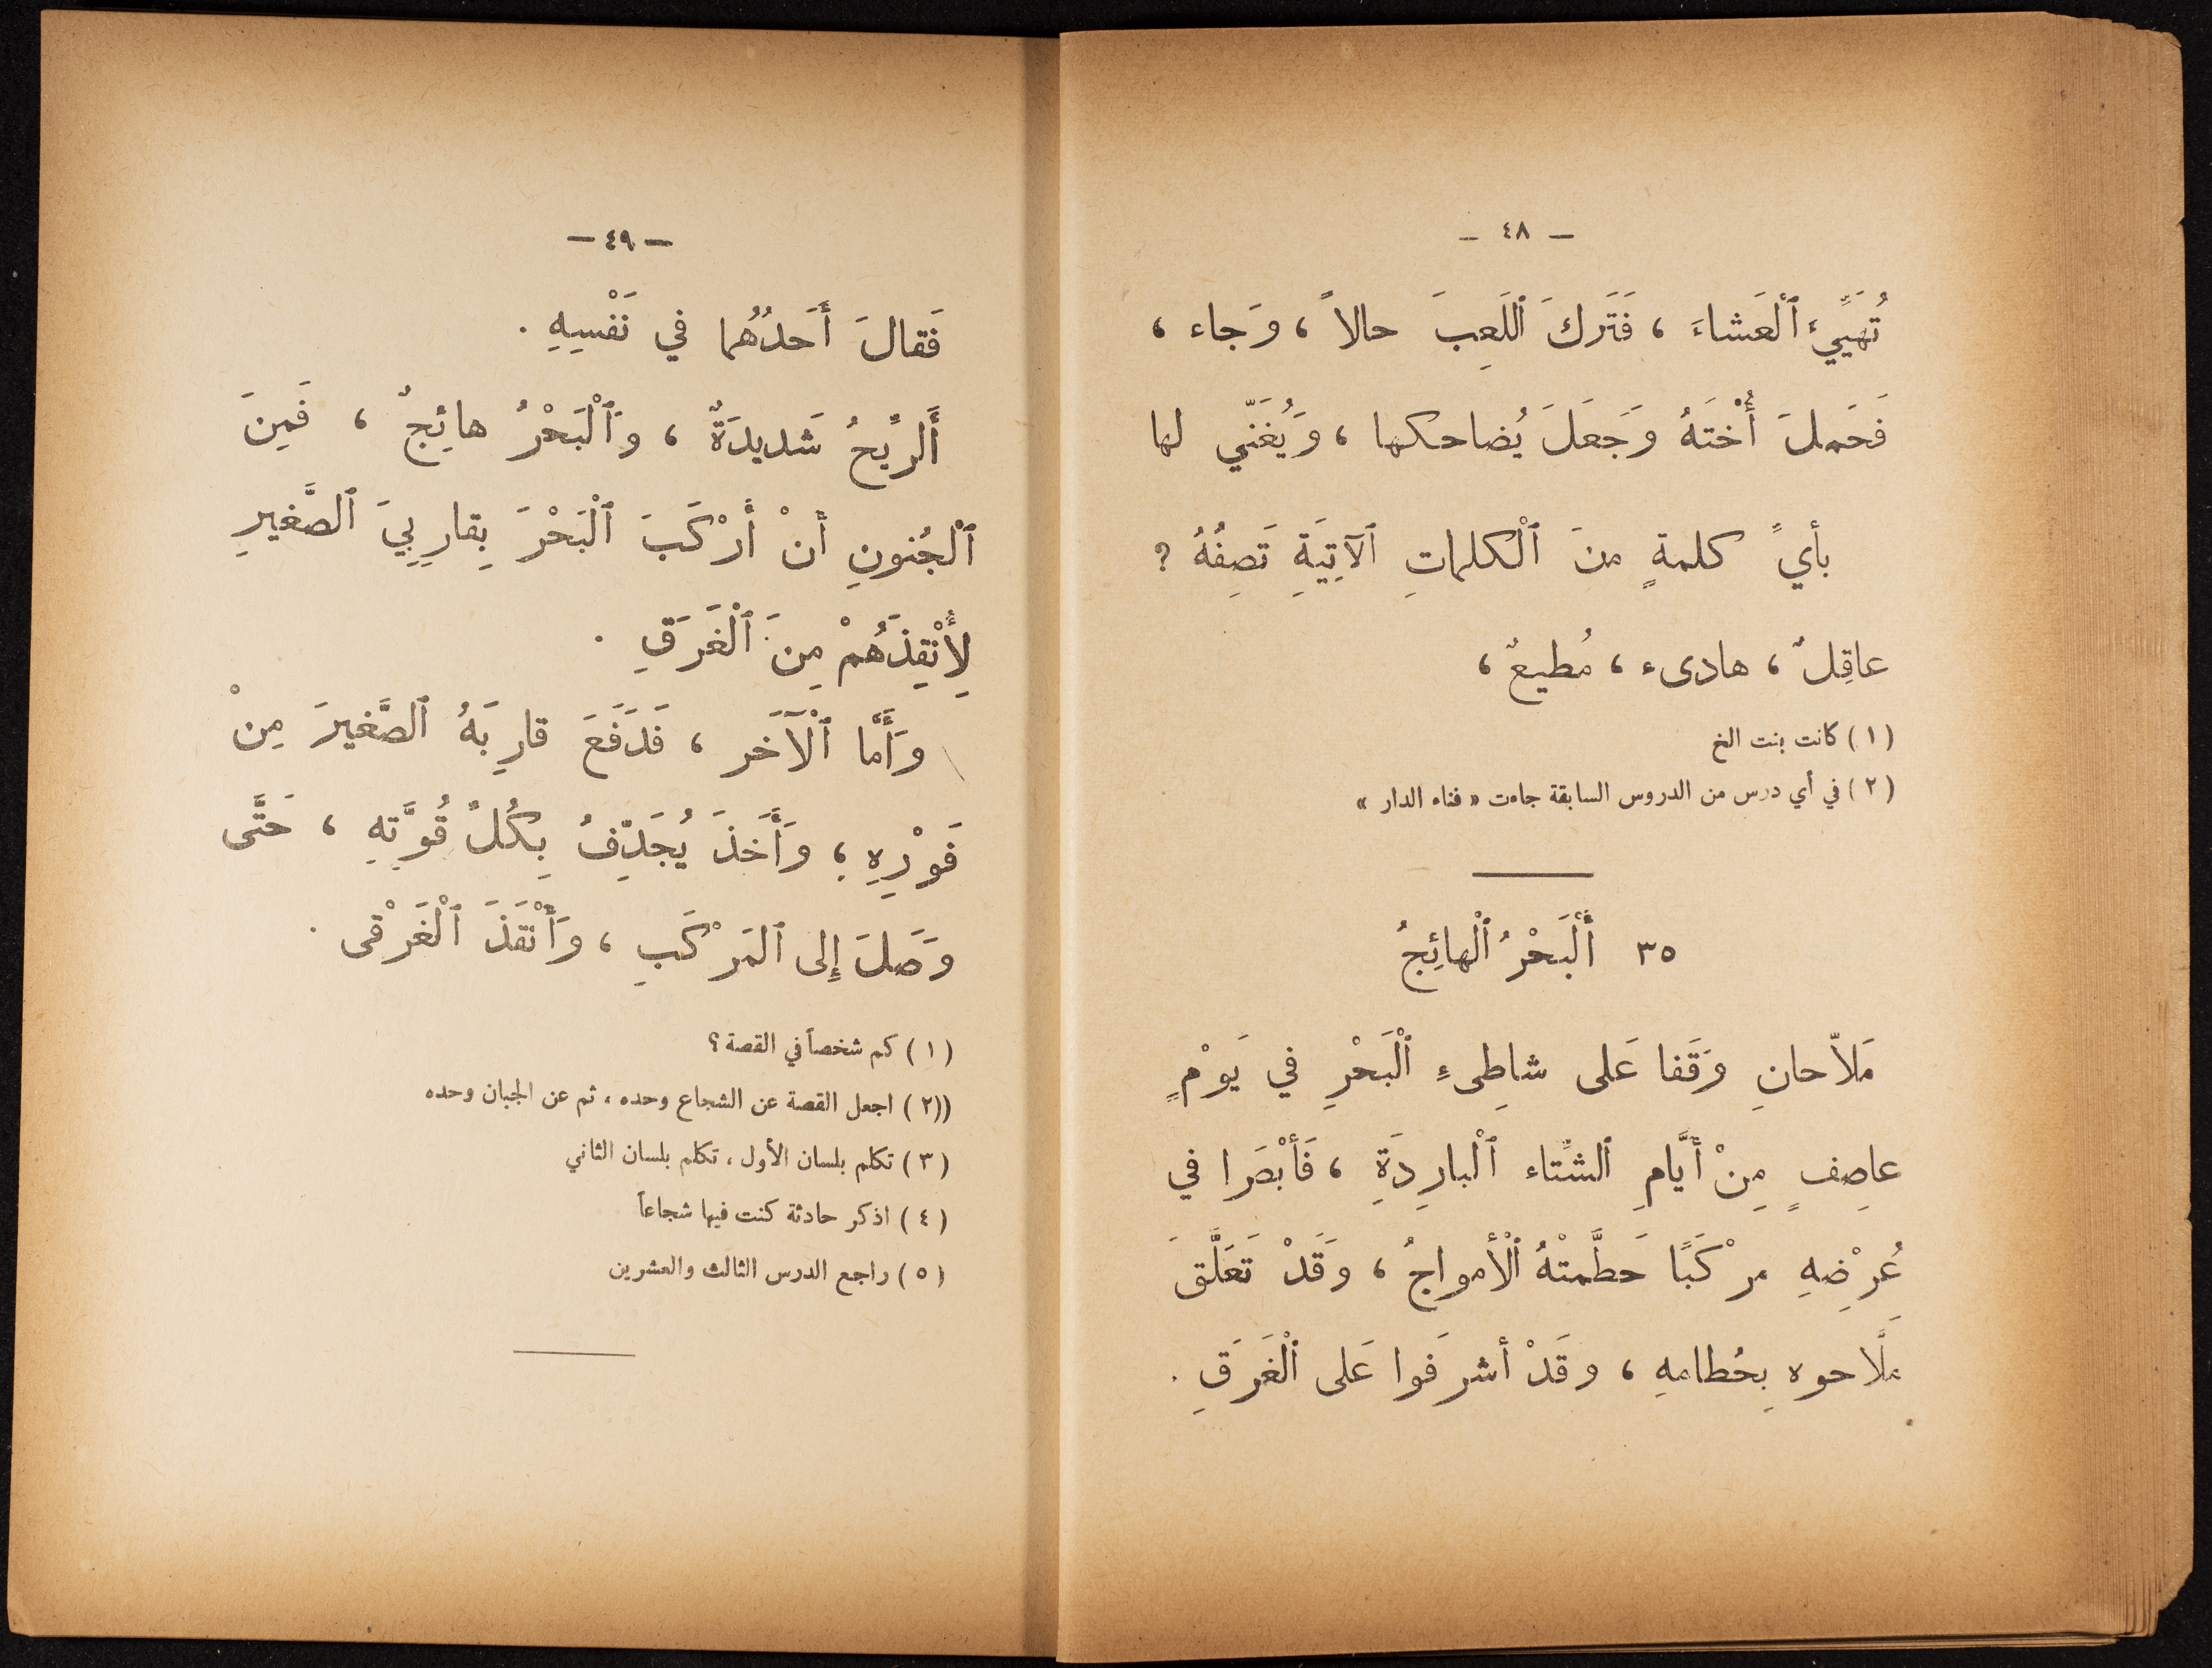 — ٤٨ —
تُهَيِّيءُ ٱلْعَشاءَ ، فَتَرَكَ ٱللَعِبَ حالاً ، وَجاء ،
فَحَملَ أُخْتَهُ وَجَعَلَ يُضاحكها ، وَيُغَنّي لها
بأيِّ كلمةٍ منَ ٱلْكلماتِ ٱلآتِيَةِ تَصِفُهُ ؟
عاقِلٌ ، هادىء ، مُطيعٌ ،
( ١ ) كانت بنت الخ
( ٢ ) في أي درس من الدروس السابقة جاءت « فناء الدار »
٣٥ أَلْبَحْرُ ٱلْهائِجُ
مَلاّحانِ وَقَفا عَلى شاطِىءِ ٱلْبَحْرِ في يَوْمٍ
عاصِفٍ مِنْ أَيَّامِ ٱلشِّتاء ٱلْبارِدَةِ ، فَأَبْصَرا في
عُرْضِهِ مرْكَبًا حَطَّمتْهُ ٱلْأمواجُ ، وَقَدْ تَعَلَّقَ
مَلَّاحوه بِحُطامهِ ، وقَدْ أشرفَوا عَلى ٱلْغَرَقِ .
— ٤٩ —
فَقالَ أَحَدُهُما في نَفْسِهِ .
أَلرِّيحُ شَديدَةٌ ، وَٱلْبَحْرُ هائِجٌ ، فَمِنَ
ٱلْجُنونِ أَنْ أَرْكَبَ ٱلْبَحْرَ بِقارِبِيَ ٱلصَّغيرِ
لِأُنْقِذَهُمْ مِنَ ٱلْغَرَقِ .
وَأَمَّا ٱلْآخَر ، فَدَفَعَ قارِبَهُ ٱلصَّغيرَ مِنْ
فَوْرِهِ ؛ وَأَخَذَ يُجَدِّفُ بِكُلِّ قُوَّتِهِ ، حَتَّى
وَصَلَ إِلى ٱلمَرْكَبِ ، وَأَنْقَذَ ٱلْغَرْقى .
( ١ ) كم شخصاً في القصة ؟
((٢ ) اجعل القصة عن الشجاع وحده ، ثم عن الجبان وحده
( ٣ ) تكلم بلسان الأول ، تكلم بلسان الثاني
( ٤ ) اذكر حادثة كنت فيها شجاعاً
( ٥ ) راجع الدرس الثالث والعشرين